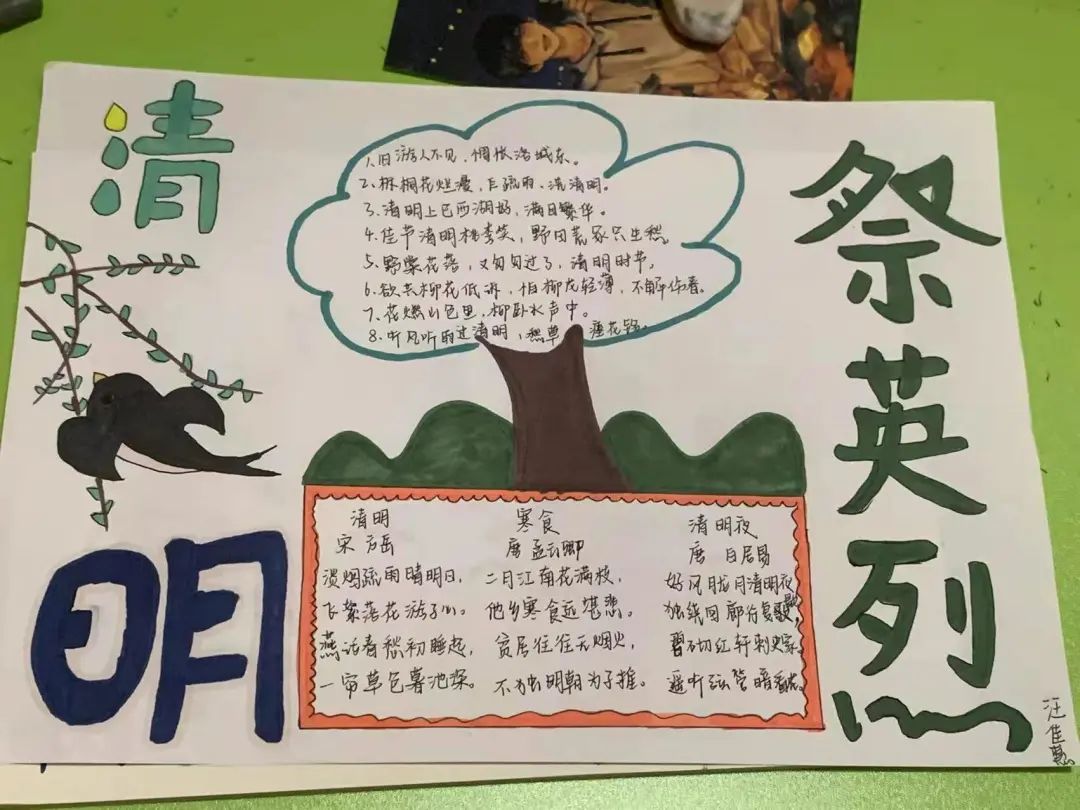 清
明
1、旧游人不见，惆怅洛城东。
2、拆桐花烂漫，乍疏雨、洗清明。
3、清明上巳西湖好，满目繁华。
4、佳节清明桃李笑，野田荒冢只生愁。
5、野棠花落，又匆匆过了，清明时节，
6、欲共柳花低诉，怕柳花轻薄，不解伤春。
7、花燃山色里，柳卧水声中。
8、听风听雨过清明，愁草 瘗花铭。
清明
宋 方岳
淡烟疏雨晴明日，
飞絮落花游子心。
燕话春愁初睡起，
一帘草色暮池深。
寒食
唐 孟云卿
二月江南花满枝，
他乡寒食远堪悲。
贫居往往无烟火，
不独明朝为子推。
清明夜
唐 白居易
好风胧月清明夜
碧砌红轩刺史家
独绕回廊行复歇，
遥听弦管暗看花。
祭英烈
汪佳慧